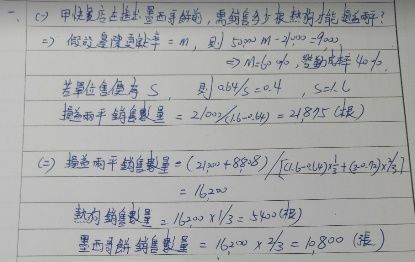 一、(一) 甲快餐店在推出墨西哥餅前,需銷售多少根熱狗才能損益兩平?
⇒ 假設邊際貢獻率 = m, 則 50,000 m - 21,000 = 9,000
⇒ M = 60%, 變動成本率 40%
若單位售價為 S, 則 0.64/S = 0.4, S = 1.6
損益兩平銷售數量 = 21,000/(1.6-0.64) = 21,875 (根)
(二) 損益兩平銷售數量 = (21,000 + 8,808) / [(1.6-0.64)×1/3 + (3-0.72)×2/3]
= 16,200
熱狗銷售數量 = 16,200 × 1/3 = 5400 (根)
墨西哥餅銷售數量 = 16,200 × 2/3 = 10,800 (張)